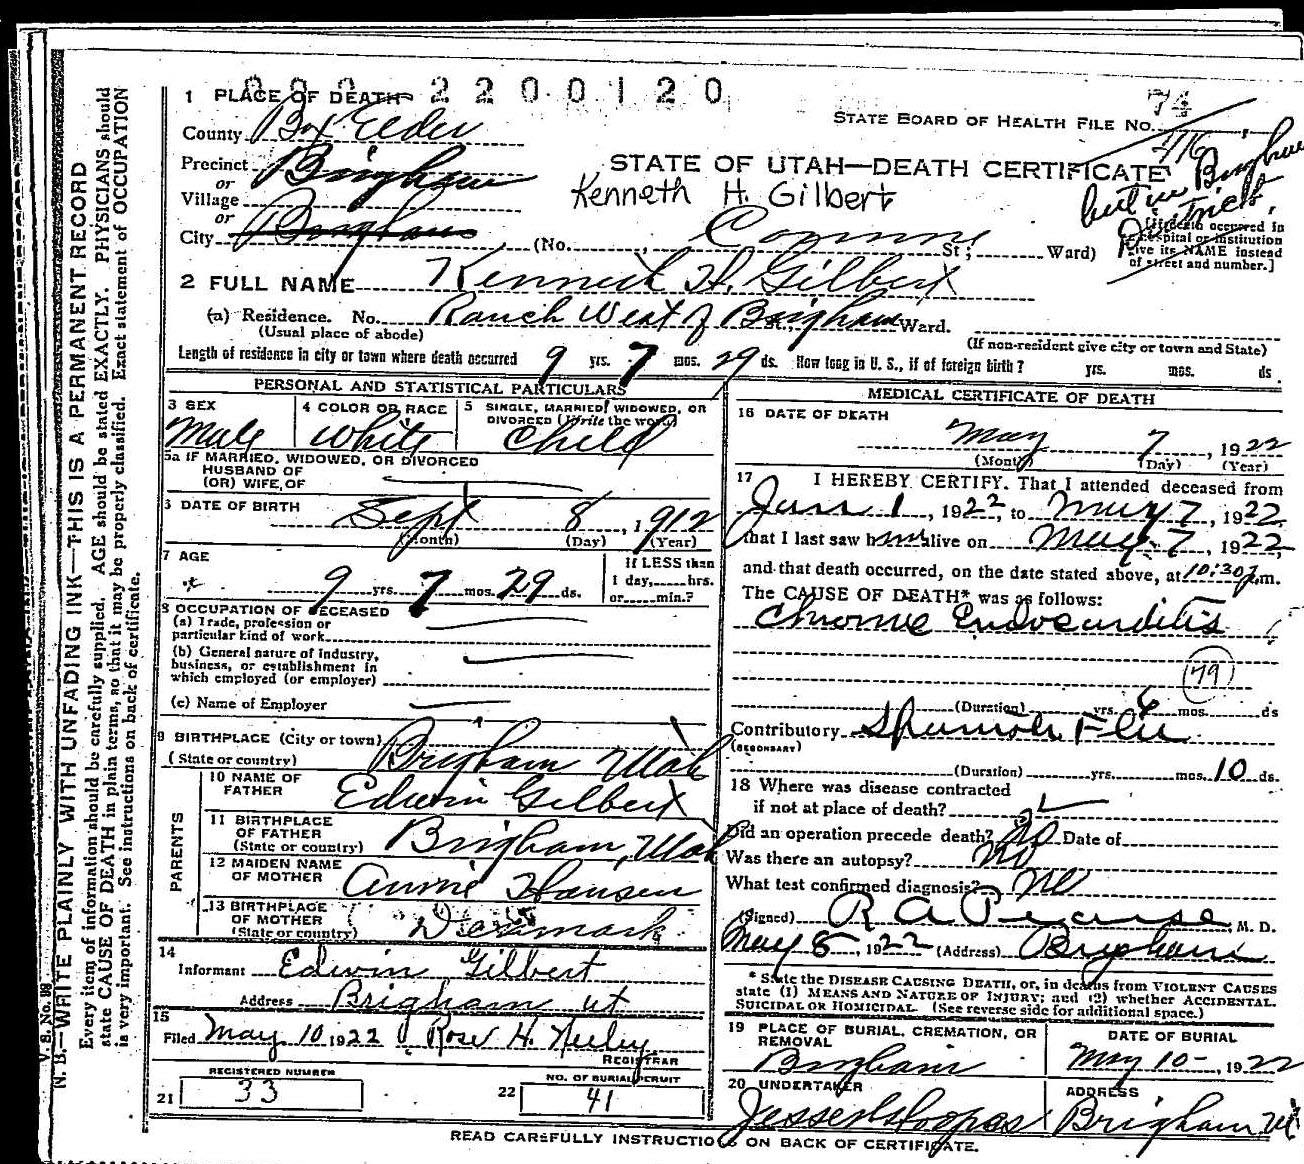 2 2 0 0 1 2 0
1 PLACE OF DEATH
STATE BOARD OF HEALTH FILE No. 74
County Box Elder
116
Precinct Brigham
STATE OF UTAH—DEATH CERTIFICATE
or
Village
Kenneth H. Gilbert
but in Brigham District
or
City Brigham, (No. , Corinne St; Ward)
[If death occurred in
hospital or institution
give its NAME instead
of street and number.]
2 FULL NAME Kenneth H. Gilbert
(a) Residence. No. Ranch West of Brigham Ward.
(Usual place of abode)
(If non-resident give city or town and State)
Length of residence in city or town where death occurred 9 yrs. 7 mos. 29 ds. How long in U. S., if of foreign birth? yrs. mos. ds.
PERSONAL AND STATISTICAL PARTICULARS
3 SEX
Male
4 COLOR OR RACE
White
5 SINGLE, MARRIED, WIDOWED, OR
DIVORCED (Write the word)
Child
5a IF MARRIED, WIDOWED, OR DIVORCED
HUSBAND OF
(OR) WIFE OF
6 DATE OF BIRTH
Sept 8, 1912
(Month) (Day) (Year)
7 AGE
9 yrs. 7 mos. 29 ds.
If LESS than
1 day, hrs.
or min.?
8 OCCUPATION OF DECEASED
(a) Trade, profession or
particular kind of work
(b) General nature of industry,
business, or establishment in
which employed (or employer)
(c) Name of Employer
9 BIRTHPLACE (City or town)
(State or country) Brigham Utah
PARENTS
10 NAME OF
FATHER Edwin Gilbert
11 BIRTHPLACE
OF FATHER
(State or country) Brigham, Utah
12 MAIDEN NAME
OF MOTHER Annie Hansen
13 BIRTHPLACE
OF MOTHER
(State or country) Denmark
14
Informant Edwin Gilbert
Address Brigham ut
15
Filed May 10 1922 Rose H. Neeley
REGISTRAR
REGISTERED NUMBER
21 33
NO. OF BURIAL PERMIT
22 41
MEDICAL CERTIFICATE OF DEATH
16 DATE OF DEATH
May 7, 1922
(Month) (Day) (Year)
17 I HEREBY CERTIFY. That I attended deceased from
Jan 1, 1922, to May 7, 1922
that I last saw him alive on May 7, 1922,
and that death occurred, on the date stated above, at 10:30 p.m.
The CAUSE OF DEATH* was as follows:
Chronic Endocarditis
79
(Duration) yrs. 6 mos. ds
Contributory Spanish Flu
(SECONDARY)
(Duration) yrs. mos. 10 ds.
18 Where was disease contracted
if not at place of death?
Did an operation precede death? No Date of
Was there an autopsy? No
What test confirmed diagnosis? No
(Signed) R A Pearse M. D.
May 8, 1922 (Address) Brigham
* State the DISEASE CAUSING DEATH, or, in deaths from VIOLENT CAUSES
state (1) MEANS AND NATURE OF INJURY; and (2) whether ACCIDENTAL.
SUICIDAL OR HOMICIDAL. (See reverse side for additional space.)
19 PLACE OF BURIAL, CREMATION, OR
REMOVAL
Brigham
DATE OF BURIAL
May 10, 1922
20 UNDERTAKER
ADDRESS
Brigham Ut
READ CAREFULLY INSTRUCTIONS ON BACK OF CERTIFICATE.
V. S. No. 98
N. B.—WRITE PLAINLY WITH UNFADING INK—THIS IS A PERMANENT RECORD
Every item of information should be carefully supplied. AGE should be stated EXACTLY. PHYSICIANS should
state CAUSE OF DEATH in plain terms, so that it may be properly classified. Exact statement of OCCUPATION
is very important. See instructions on back of certificate.